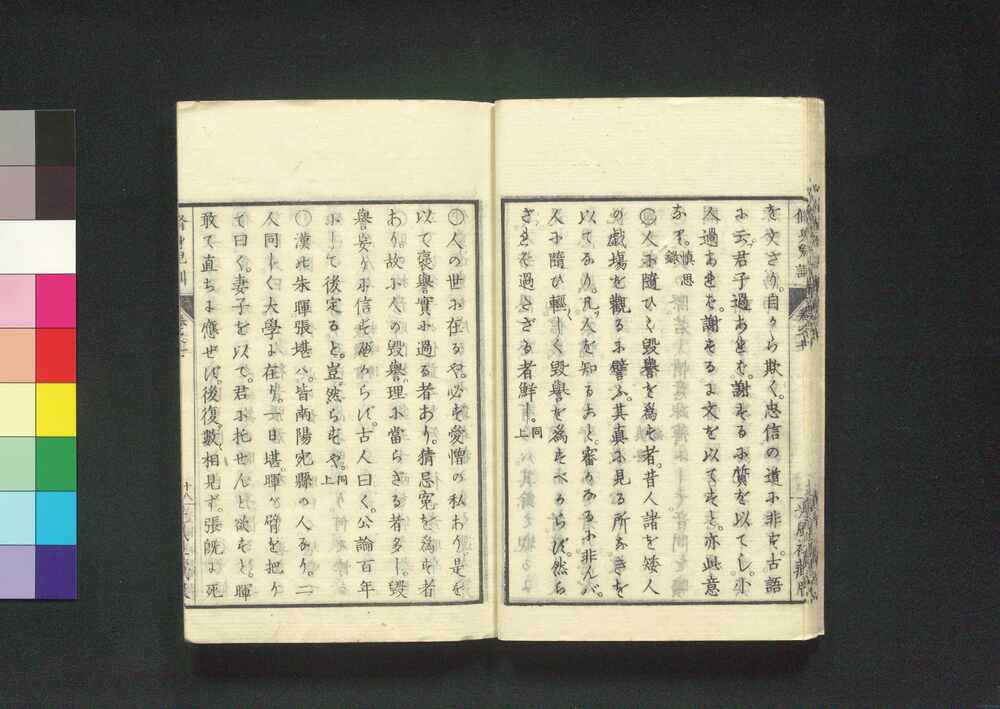 を文ざり。自から欺く。忠信の道に非ず。古語
に云。君子過あれを。謝するに質を以てし。小
人過あれを。謝するに文を以てすと。亦此意
なり。慎思録
人に隨ひて毀譽を為す者。昔人諸を矮人
の戯場を觀るに譬ふ。其真に見る所なきを
以てなり。凡人を知ること。審かなるに非んバ。
人に隨ひ輕しく毀譽を為すべからず。然ら
ざれを過とざる者鮮し。同上
人の世に在るや。必ず愛憎の私あり是を
以て褒譽實に過る者あり。猜忌寃を為す者
あり。故に人の毀譽。理に當らざる者多し。毀
譽妄りに信ず可からず。古人曰く。公論百年
にして後定ると。豈然らずや。同上
漢の朱暉張堪ハ。皆南陽宛縣の人なり。二
人同しく大學に在り。一日堪暉の臂を把り
て曰く。妻子を以て。君に托せんと欲すと。暉
敢て直ちに應せず。後復數相見ず。張既に死